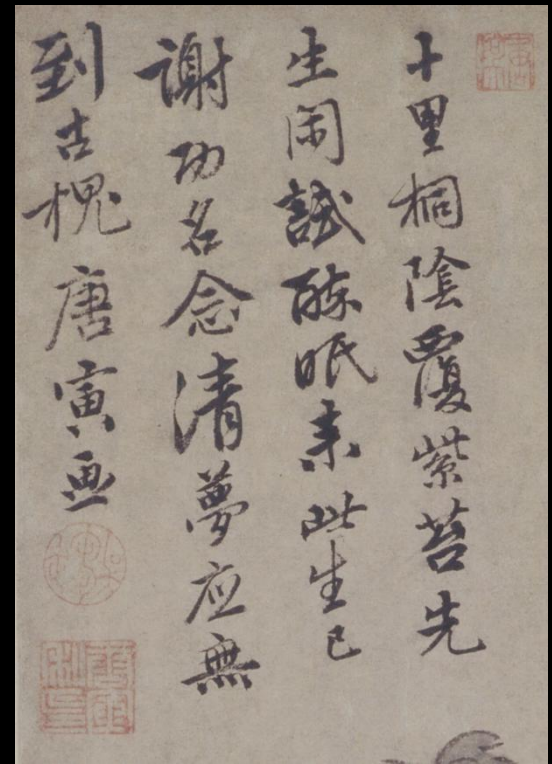 十里桐陰覆紫苔先
生闲試醉眠来此生已
謝功名念清夢应無
到古槐唐寅画